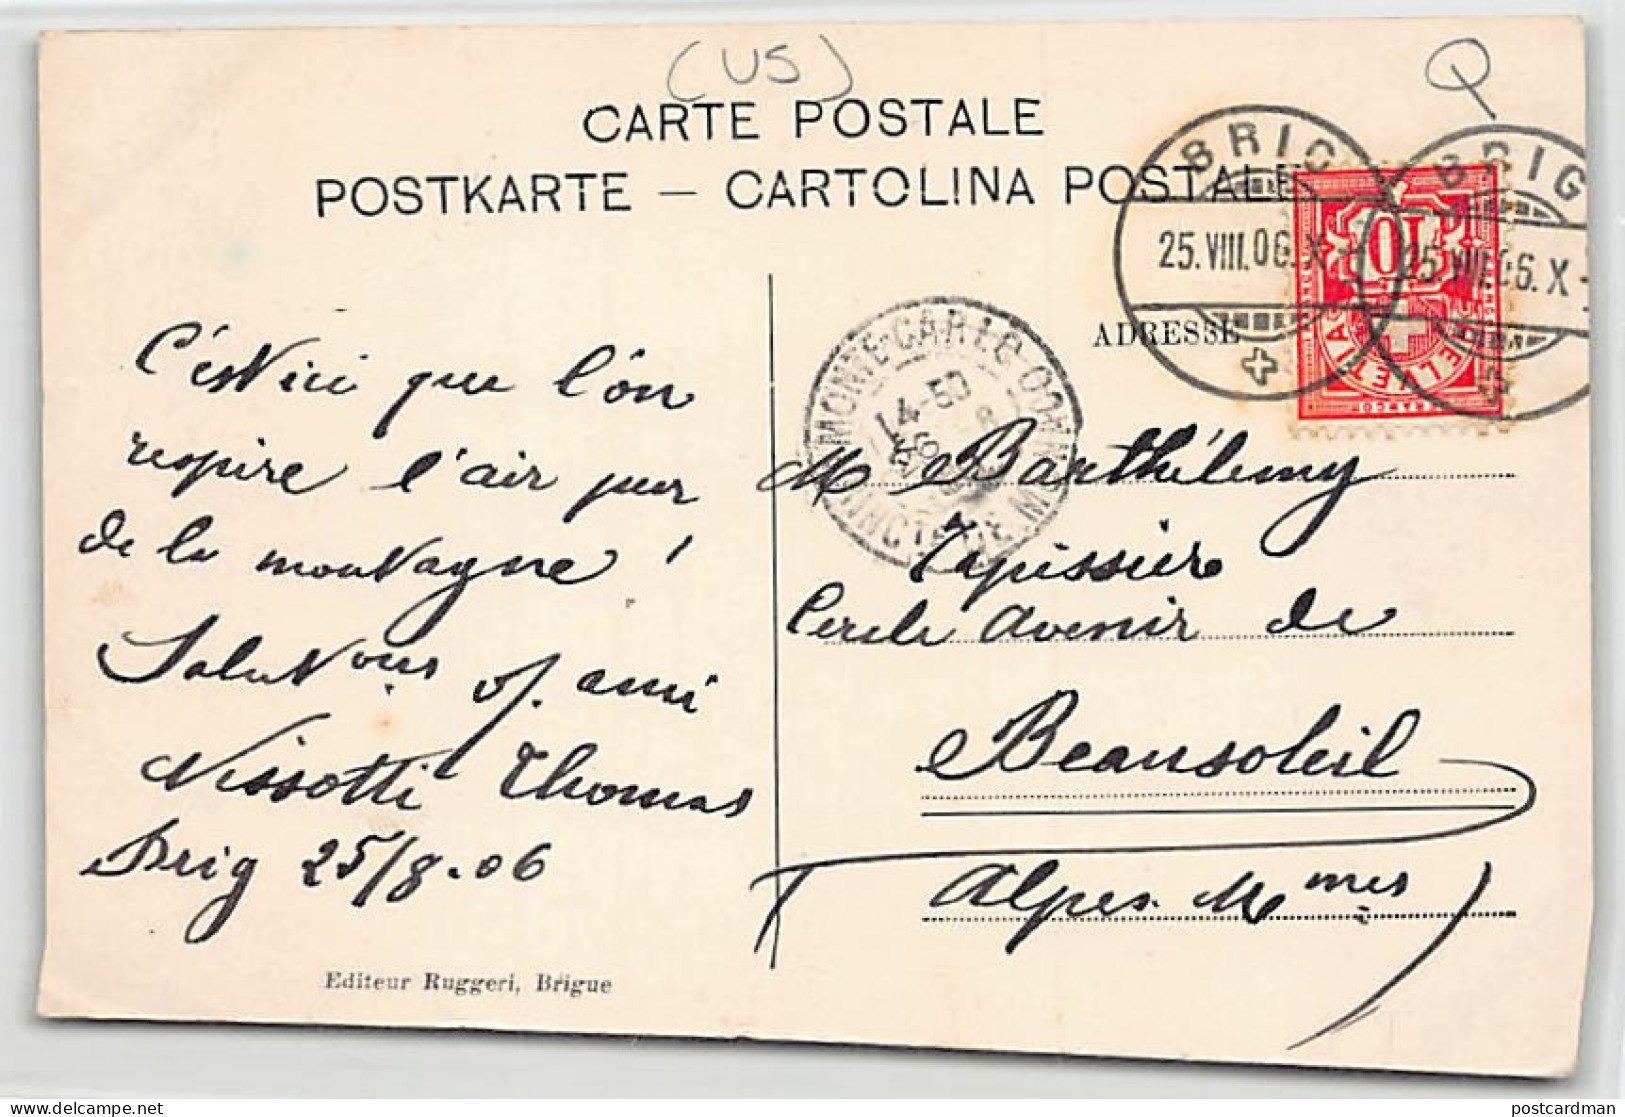 (US)
CARTE POSTALE
POSTKARTE — CARTOLINA POSTALE
BRIG
25.VIII.06.X
BRIG
25.VIII.06.X
10
HELVETIA
FRANCO
ADRESSE
MONTE-CARLO
14-50
26
8
C'est ici que l'on
respire l'air pur
de la montagne !
Salut
ami
Vissotti Thomas
Brig 25/8.06
M Barthélemy
Tapissier
Cercle Avenir de
Beausoleil
(Alpes Mmes)
Editeur Ruggeri, Brigue
postcardman